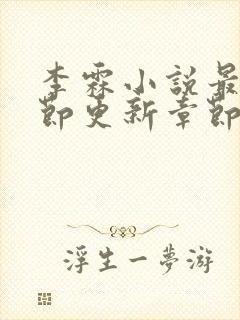 李霖小說最
節更新章節
浮生一夢游